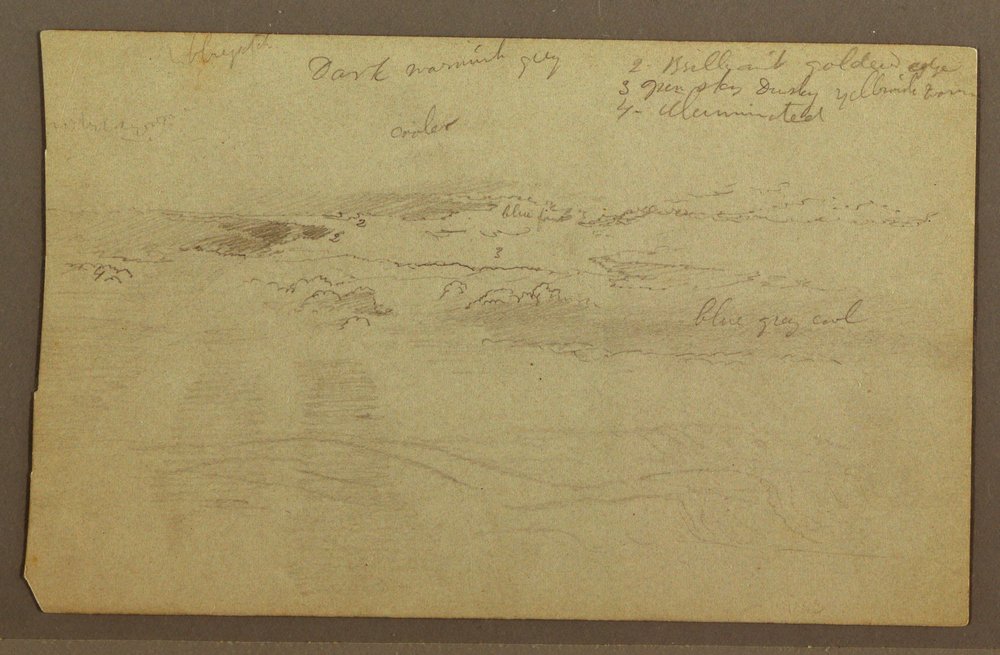 Dark warmish grey
2 - Brilliant golden edge
3 open sky Dusky yellowish
4 - illuminated
cooler
2
blue
2
3
4
blue grey cool